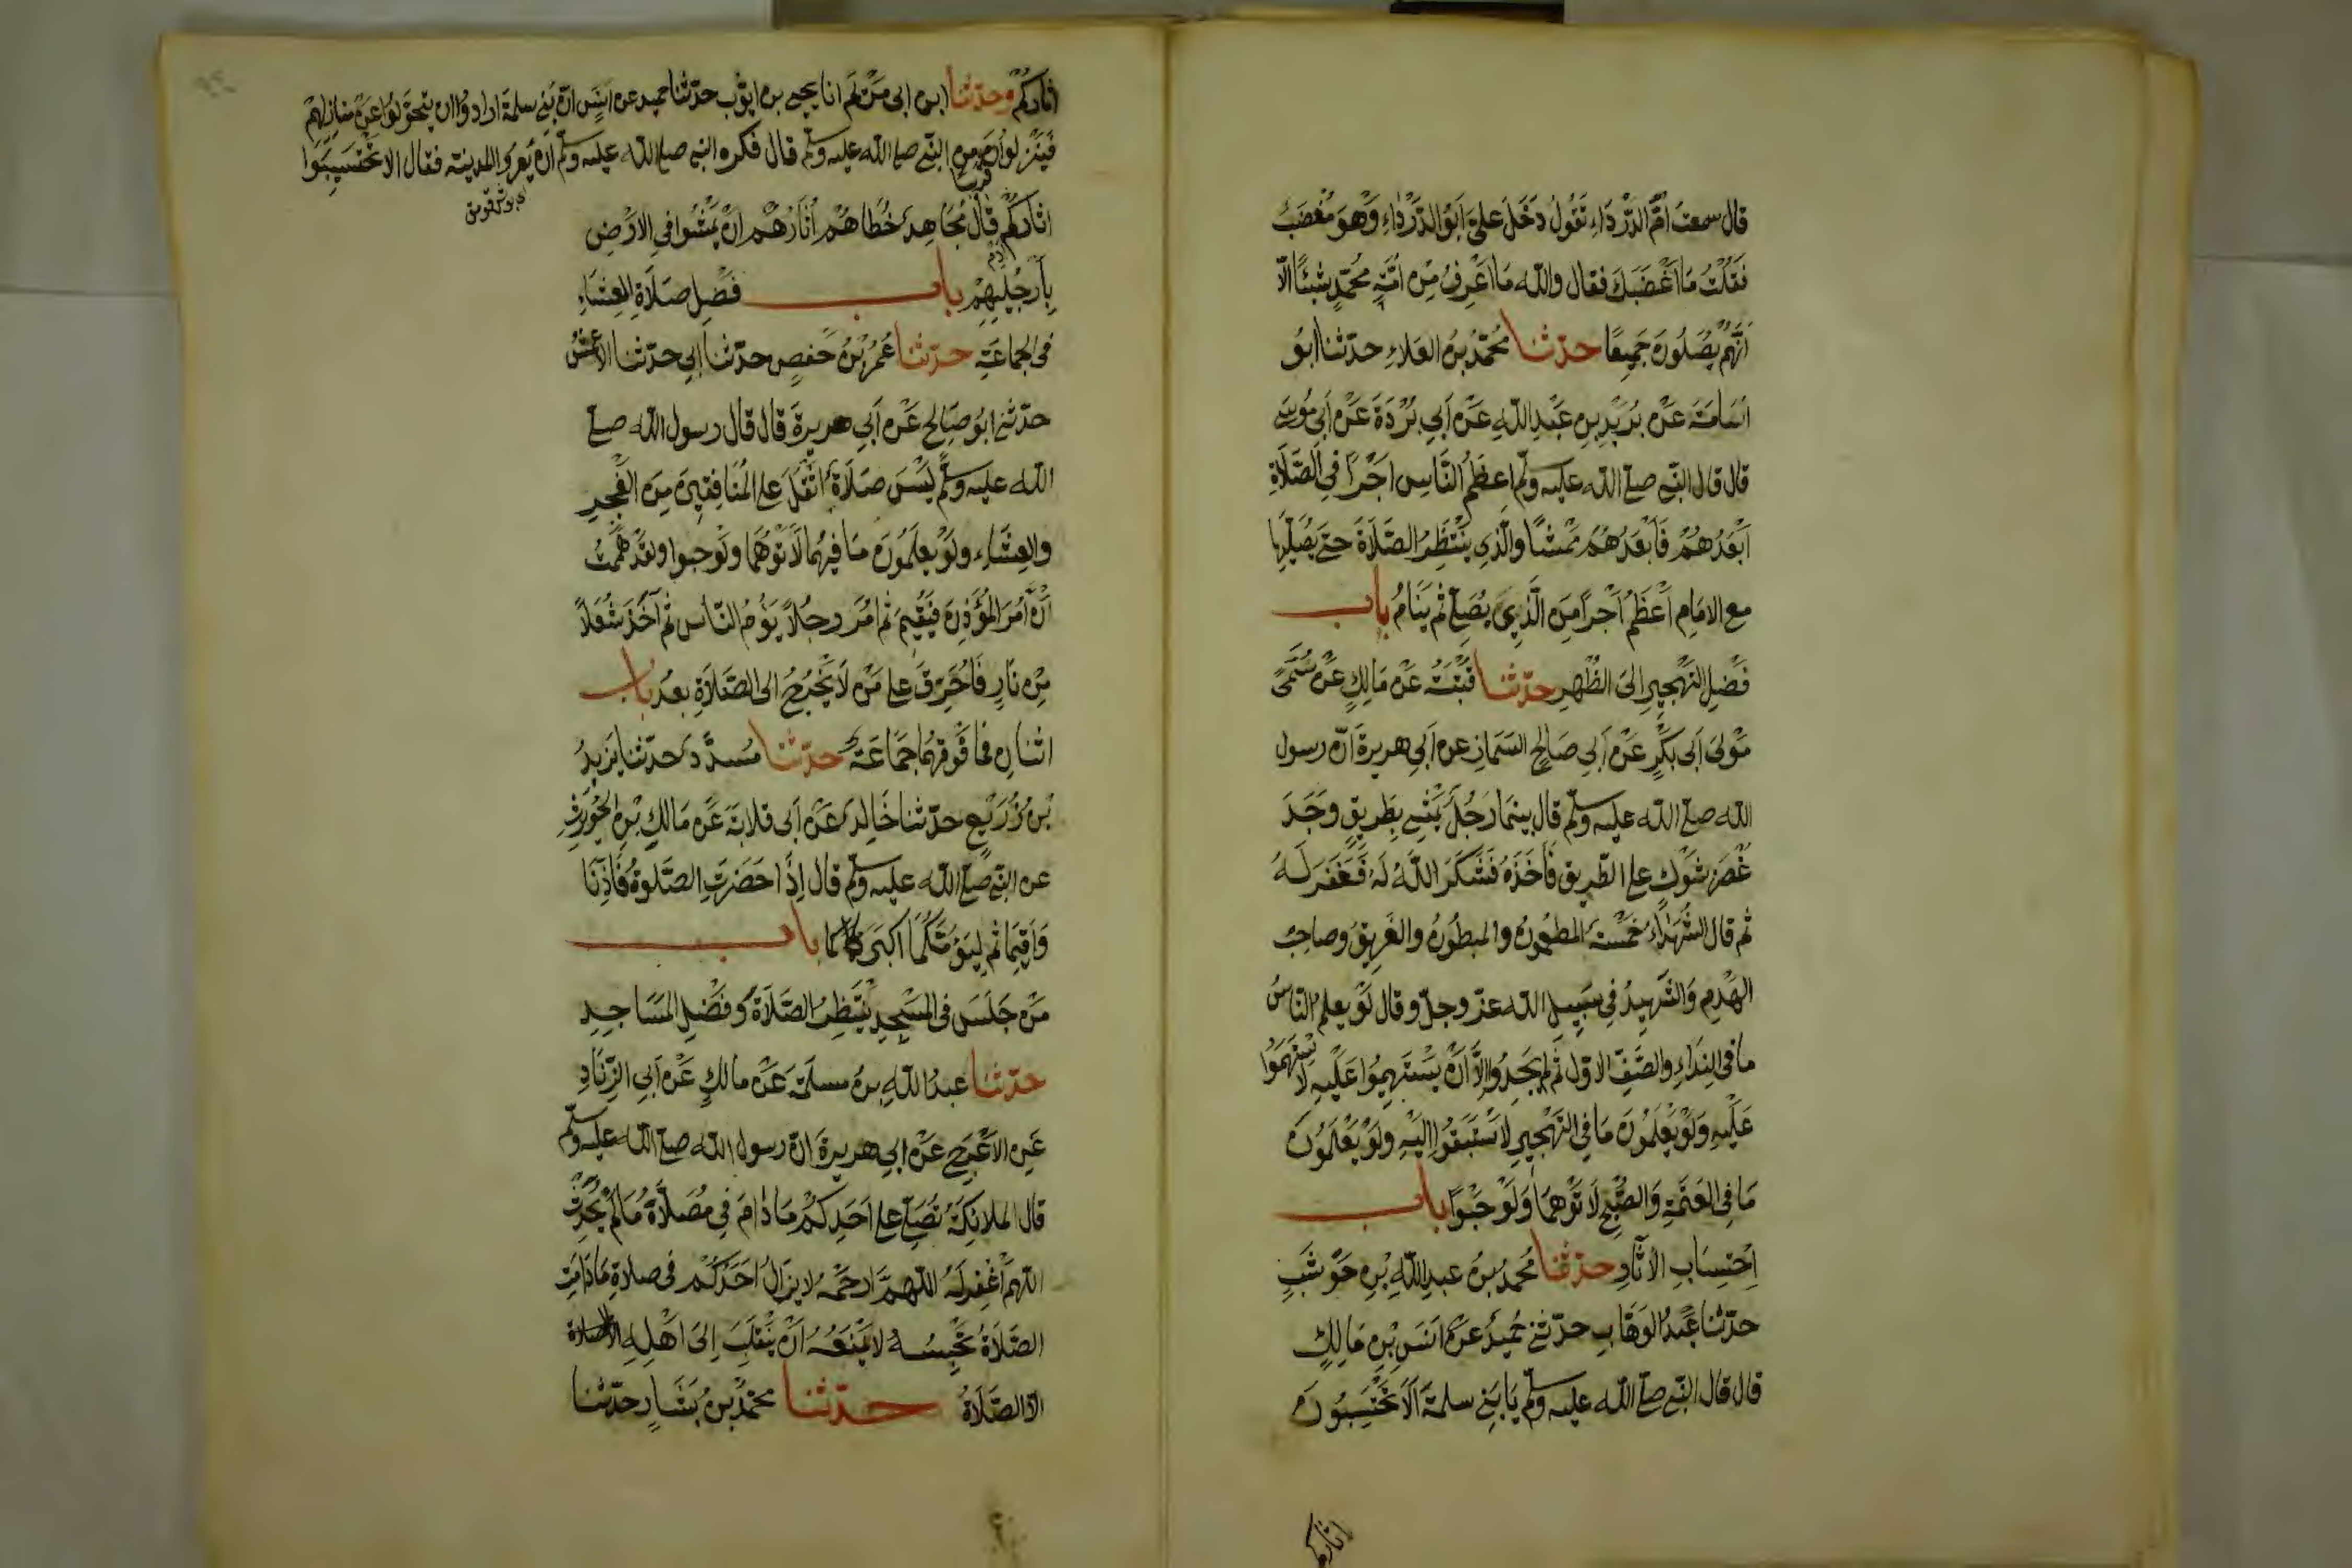 قال سمعت أُمَّ الدَّرْدَاءِ تَقُولُ دَخَلَ عليَّ اَبُو الدَّرْدَاءِ وَهوَ مُغْضَبٌ
فَقُلْتُ مَا اَغْضَبَكَ فقال والله مَا اَعْرِفُ مِن اُمَّةِ مُحَمَّدٍ شَيْئًا الّا
اَنَّهُمْ يُصَلُّونَ جَمِيعًا حدّثنا مُحَمَّدُ بنُ العَلاءِ حدّثنا ابُو
اُسَامَةَ عَنْ بُرَيْدِ بنِ عَبْدِ اللهِ عَنْ اَبِي بُرْدَةَ عَنْ اَبِي مُوسَى
قال قال النّبي صلى الله عليه وسلم اعظَمُ النَّاسِ اَجْرًا فِي الصَّلَاةِ
اَبْعَدُهُمْ فَاَبْعَدُهُمْ مَمْشًا والَّذِي يَنْتَظِرُ الصَّلَاةَ حتى يُصَلِّيَهَا
مع الامَامِ اَعْظَمُ اَجْرًا مِنَ الَّذِي يُصَلِّي ثم يَنَامُ باب
فَضْلِ التَّهْجِيرِ الَى الظُّهْرِ حدّثنا قُتَيْبَةُ عَنْ مَالِكٍ عَنْ سُمَيٍّ
مَوْلَى اَبى بَكْرٍ عَنْ اَبِي صَالِحٍ السَّمَانِ عن اَبِي هريرةَ انّ رسول
الله صلى الله عليه وسلم قال بينمَا رَجُلٌ يَمْشِي بِطَرِيقٍ وَجَدَ
غُصْنَ شَوْكٍ على الطّريق فَاَخَذَهُ فَشَكَرَ اللّهُ لَهُ فَغَفَرَ لَهُ
ثم قال الشُّهَدَاءُ خَمْسَةٌ المطعُونُ والمبطُونُ والغَرِيقُ وصاحِبُ
الهَدْمِ وَالشَّهِيدُ فِي سَبِيلِ الله عزّ وجلّ وقال لَوْ يعلم النّاسُ
مَا فى النِّدَاءِ والصَّفِّ الاوّل ثم لم يَجِدُوا إلّا اَنْ يَسْتَهِمُوا عَلَيْهِ لَاسْتَهَمُوا
عَلَيْهِ وَلَوْ يَعْلَمُونَ مَا فِي التَّهْجِيرِ لَاسْتَبَقُوا اِلَيْهِ ولَوْ يَعْلَمُونَ
مَا فِى العَتَمَةِ وَالصُّبْحِ لَاتَوْهُمَا وَلَوْ حَبْوًا باب
اِحْتِسَابِ الآثَارِ حدّثنا مُحمدُ بنُ عبدِ اللهِ بْنِ حَوْشَبٍ
حدّثنا عَبْدُ الوَهَّابِ حدّثني حُمَيْدٌ عَنْ اَنَسِ بْنِ مَالِكٍ
قال قال النّبي صلى الله عليه وسلم يَا بَنِي سلمةَ اَلَا تَحْتَسِبُونَ
اثاركم
اثَارَكُمْ وحدّثنا ابن ابى مَرْيَم انا يحيى بن ايّوب حدّثنا حميد عن اَنَسٍ انّ بَنِي سلمةَ ارادوا ان يتحوّلوا عَنْ منازِلِهِمْ
فَيَنْزِلُوا قريبا من النّبي صلى الله عليه وسلم قال فكره النبي صلى الله عليه وسلم ان يُعْرُوا المدينة فقال الا تَحْتَسِبُوا
اثَارَكُمْ قَالَ مُجَاهِدٌ خُطَاهُمْ اٰثَارُهُمْ انْ يَمْشُوا فِي الاَرْضِ
بِاَرْجُلِهِمْ باب فَضْلِ صَلَاةِ العِشَاءِ
فى الجماعَةِ حدّثنا عُمَرُ بْنُ حَفْصٍ حدّثنا اَبِي حدّثنا الاَعْمَشُ
حدّثني ابُو صَالِحٍ عَنْ اَبِي هريرةَ قال قال رسول الله صلى
الله عليه وسلم لَيْسَ صَلَاةٌ اَثْقَلَ على المُنَافِقِينَ مِنَ الفَجْرِ
والعِشَاءِ ولَوْ يعلَمُونَ مَا فِيهِمَا لَاتَوْهُمَا ولَوْ حبوا ولقَدْ هَمَمْتُ
اَنْ آمُرَ المُؤَذِّنَ فَيُقِيمَ ثم آمُرَ رجُلاً يَؤُمُّ النّاسَ ثم آخُذَ شُعَلًا
مِنْ نَارٍ فَاُحَرِّقَ على مَنْ لَا يَخْرُجُ الى الصَّلاَةِ بعدُ باب
اثنانِ فما فَوْقَهُمَا جَمَاعَةٌ حدّثنا مُسَدَّدٌ حدّثنا يَزِيدُ
بْنُ زُرَيْعٍ حدّثنا خَالِدٌ عَنْ اَبى قلابَةَ عَنْ مَالِكِ بْنِ الحُوَيْرِثِ
عن النبي صلى الله عليه وسلم قال اِذَا حَضَرَتِ الصَّلوةُ فَاَذِّنَا
وَاَقِيمَا ثم لِيَؤُمَّكُمَا اكبَرُكما باب
مَنْ جَلَسَ فى المَسْجِدِ يَنْتَظِرُ الصَّلَاةَ وفَضْلِ المَسَاجِدِ
حدّثنا عبدُ اللهِ بنُ مسلمَةَ عَنْ مالكٍ عَنْ اَبِي الزِّنَادِ
عَنِ الاَعْرَجِ عَنْ ابِي هريرةَ انّ رسول الله صلى الله عليه وسلم
قال الملائِكَةُ تُصَلِّي على اَحَدِكُمْ مَا دَامَ فِي مُصَلَّاهُ مَا لَمْ يُحْدِثْ
اللهمّ اغْفِرْ لَهُ اللّهُمَّ ارحَمْهُ لا يزالُ اَحَدُكُمْ فى صلاةٍ مَا دَامَتِ
الصَّلَاةُ تَحْبِسُهُ لا يَمْنَعُهُ اَنْ يَنْقَلِبَ اِلَى اَهْلِهِ
الّا الصَّلَاةُ حدّثنا محمّدُ بنُ بَشَّارٍ حدّثنا